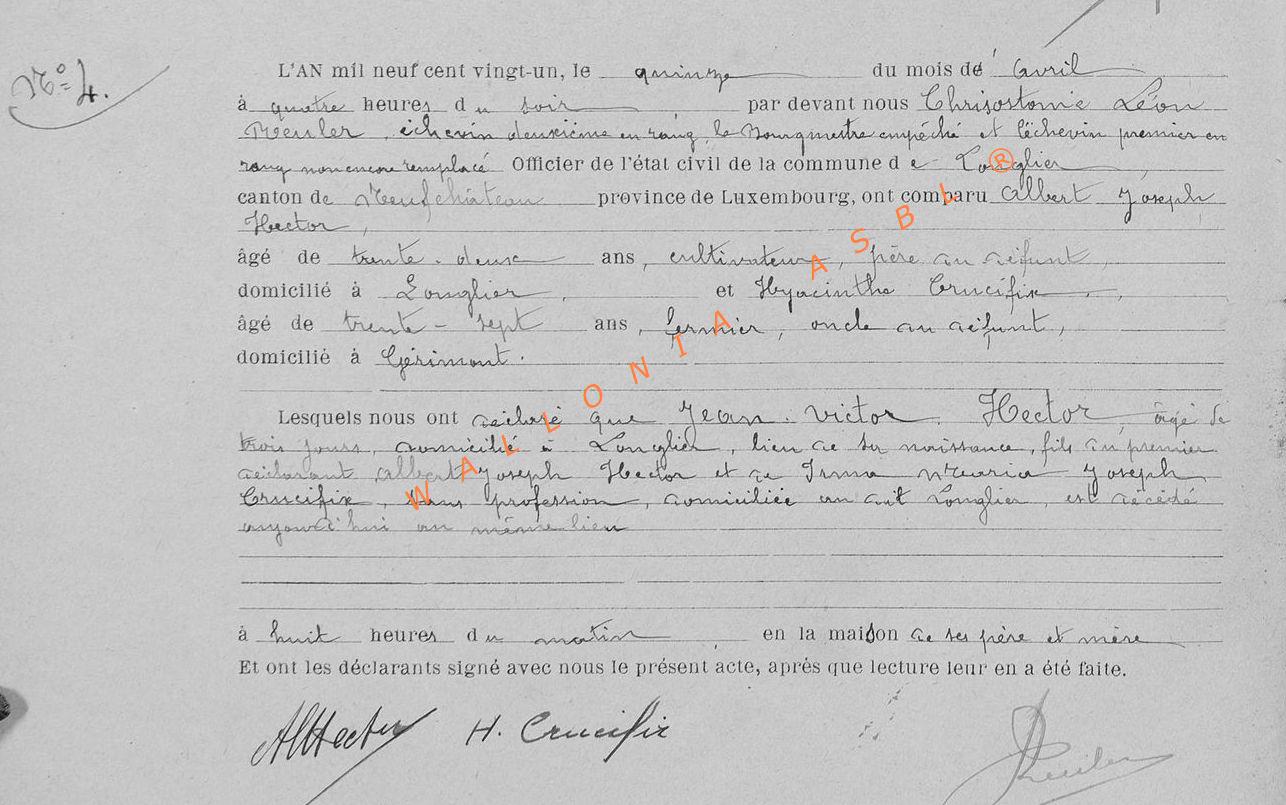 N° 4.
L'AN mil neuf cent vingt-un, le quinze du mois de Avril
à quatre heures du soir par devant nous Chrisostome Léon
échevin deuxième en rang, le Bourgmestre empêché et l'échevin premier en
rang non encore remplacé Officier de l'état civil de la commune de Longlier,
canton de Neufchâteau province de Luxembourg, ont comparu Albert Joseph
Hector,
âgé de trente-deux ans, cultivateur, père au défunt,
domicilié à Longlier, et Hyacinthe Crucifix,
âgé de trente-sept ans, fermier, oncle au défunt,
domicilié à Gérimont.
Lesquels nous ont déclaré que Jean Victor Hector, âgé de
trois jours, domicilié à Longlier, lieu de sa naissance, fils du premier
déclarant Albert Joseph Hector et de Irma Maria Joseph
Crucifix, sans profession, domiciliée au dit Longlier, est décédé
aujourd'hui au même lieu
à huit heures du matin en la maison de ses père et mère
Et ont les déclarants signé avec nous le présent acte, après que lecture leur en a été faite.
AlHector H. Crucifix
WALLONIA ASBL ®